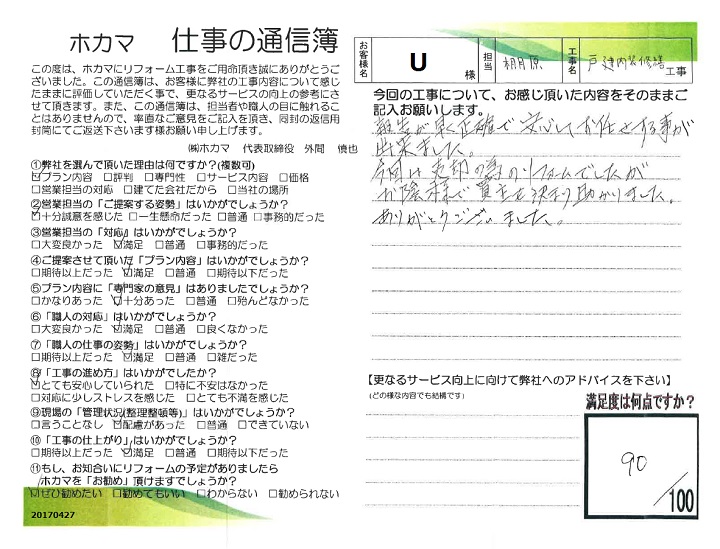 ホカマ 仕事の通信簿
この度は、ホカマにリフォーム工事をご用命頂き誠にありがとうご
ざいました。この通信簿は、お客様に弊社の工事内容について感じ
たままに評価していただく事で、更なるサービスの向上の参考にさ
せて頂きます。また、この通信簿は、担当者や職人の目に触れるこ
とはありませんので、率直なご意見をご記入頂き、同封の返信用
封筒にてご返送下さいます様お願い申し上げます。
㈱ホカマ 代表取締役 外間
①弊社を選んで頂いた理由は何ですか?(複数可)
☑プラン内容 □評判 □専門性 □サービス内容 □価格
□営業担当の対応 □建てた会社だから □当社の場所
②営業担当の「ご提案する姿勢」はいかがでしょうか?
☑十分誠意を感じた □一生懸命だった □普通 □事務的だった
③営業担当の「対応」はいかがでしょうか?
□大変良かった ☑満足 □普通 □事務的だった
④ご提案させて頂いた「プラン内容」はいかがでしょうか?
□期待以上だった ☑満足 □普通 □期待以下だった
⑤プラン内容に「専門家の意見」はありましたでしょうか?
□かなりあった ☑十分あった □普通 □殆んどなかった
⑥「職人の対応」はいかがでしょうか?
□大変良かった ☑満足 □普通 □良くなかった
⑦「職人の仕事の姿勢」はいかがでしょうか?
□期待以上だった ☑満足 □普通 □雑だった
⑧「工事の進め方」はいかがでしたか?
☑とても安心していられた □特に不安はなかった
□対応に少しストレスを感じた □とても不満を感じた
⑨現場の「管理状況(整理整頓等)」はいかがでしょうか?
□言うことなし ☑配慮があった □普通 □できていない
⑩「工事の仕上がり」はいかがでしょうか?
□期待以上だった ☑満足 □普通 □期待以下だった
⑪もし、お知合いにリフォームの予定がありましたら
ホカマを「お勧め」頂けますでしょうか?
☑ぜひ勧めたい □勧めてもいい □わからない □勧められない
20170427
お客様名 U 様 担当 工事名 戸建内装修繕 工事
今回の工事について、お感じ頂いた内容をそのままご
記入お願いします。
報告が早く正確で安心してお任せする事が
出来ました。
今回は売却の為のリフォームでしたが
お陰様で買主も決まり助かりました。
ありがとうございました。
【更なるサービス向上に向けて弊社へのアドバイスを下さい】
(どの様な内容でも結構です)
満足度は何点ですか?
90
/100